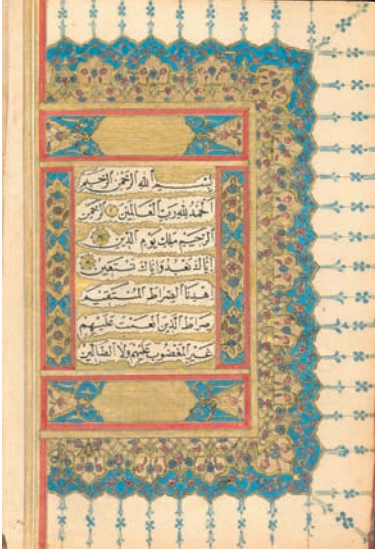 بِسْمِ اللهِ الرَّحْمٰنِ الرَّحِيمِ
اَلْحَمْدُ لِلّٰهِ رَبِّ الْعَالَمِينَ الرَّحْمٰنِ
الرَّحِيمِ مَلِكِ يَوْمِ الدِّينِ
اِيَّاكَ نَعْبُدُ وَاِيَّاكَ نَسْتَعِينُ
اِهْدِنَا الصِّرَاطَ الْمُسْتَقِيمَ
صِرَاطَ الَّذِينَ اَنْعَمْتَ عَلَيْهِمْ
غَيْرِ الْمَغْضُوبِ عَلَيْهِمْ وَلَا الضَّالِّينَ